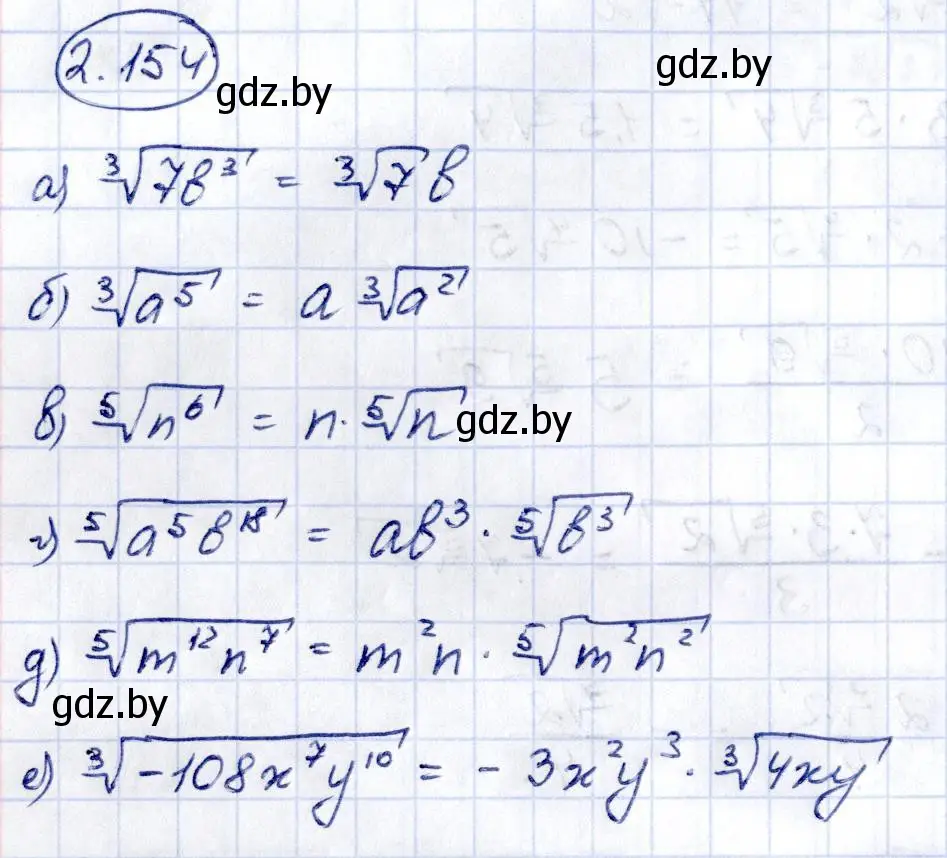 2.154
gdz.by
gdz.by
а) ∛(7b³) = ∛7 b
б) ∛(a⁵) = a ∛(a²)
в) ⁵√(n⁶) = n · ⁵√n
gdz.by
г) ⁵√(a⁵b¹⁸) = ab³ · ⁵√(b³)
д) ⁵√(m¹²n⁷) = m²n · ⁵√(m²n²)
gdz.by
е) ∛(-108x⁷y¹⁰) = - 3x²y³ · ∛(4xy)